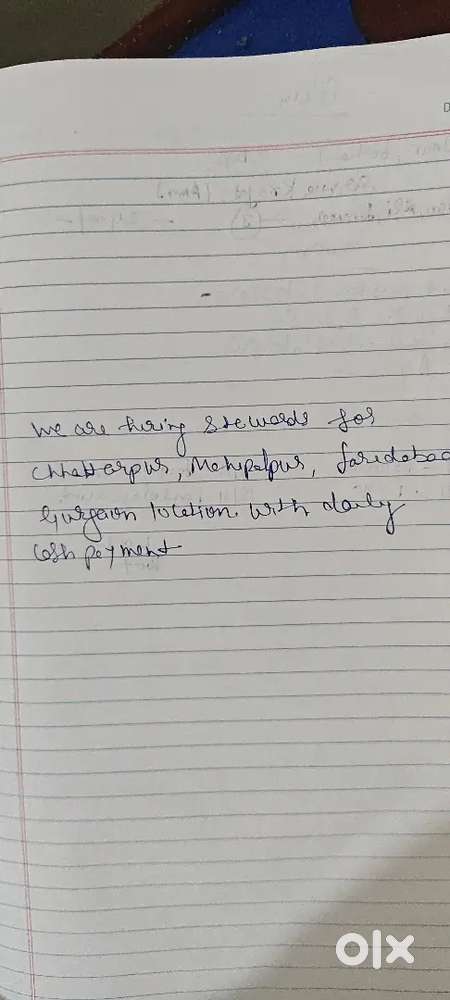 We are hiring stewards for
Chhattarpur, Mahipalpur, faridabad
Gurgaon location. with daily
Cash payment
olx